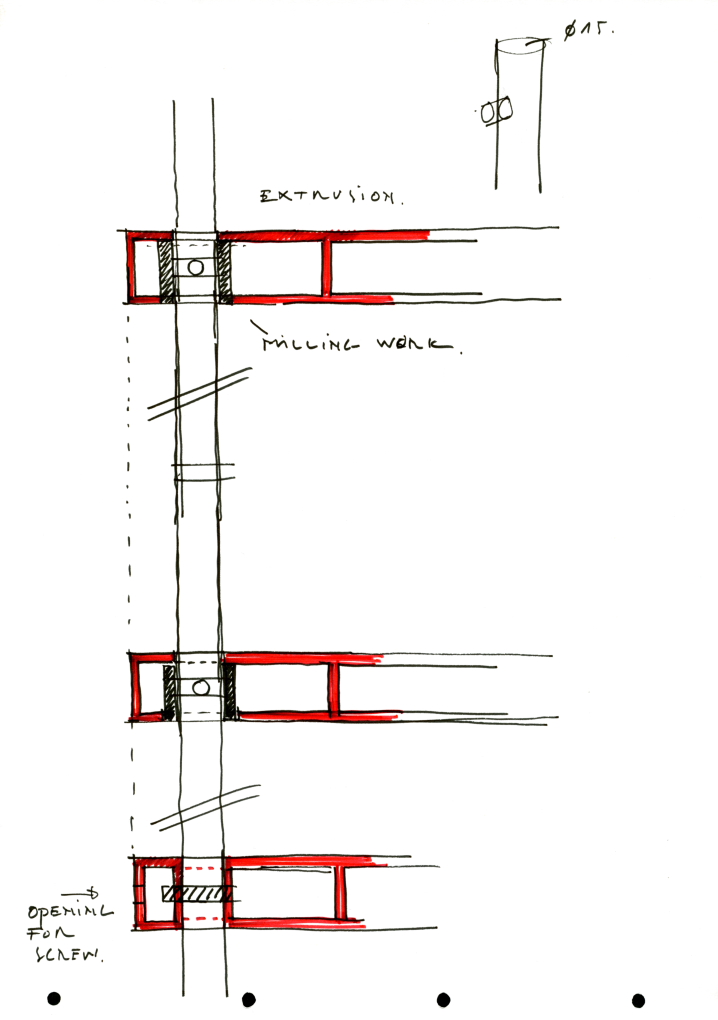 Ø15.
EXTRUSION.
MILLING WORK.
OPENING
FOR
SCREW.